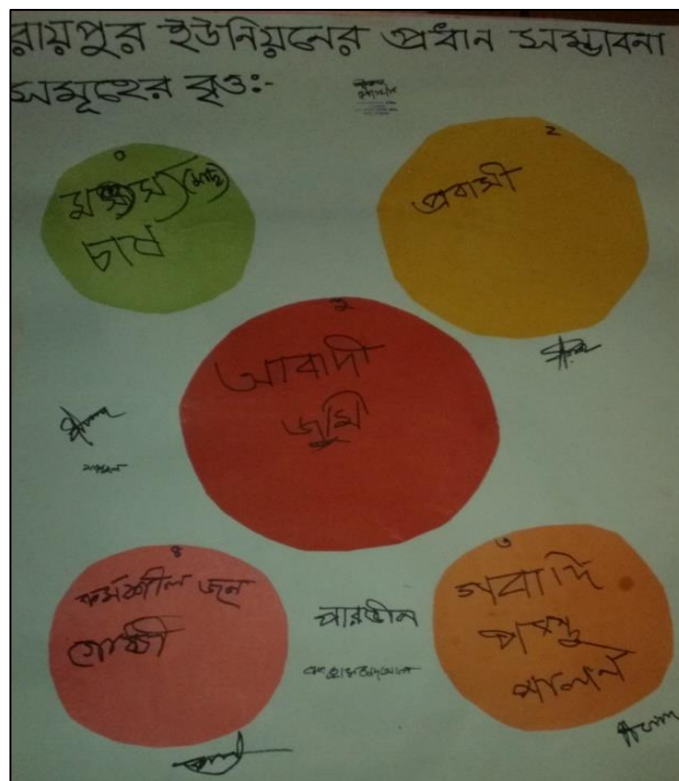 রায়পুর ইউনিয়নের প্রধান সম্ভাবনা
সমূহের বৃত্ত:-
০
মৎস্য (মাছ)
চাষ
২
প্রবাসী
১
আবাদী
জমি
৪
কর্মশীল জন
গোষ্ঠী
পারভীন
৩
গবাদি
পশু
পালন